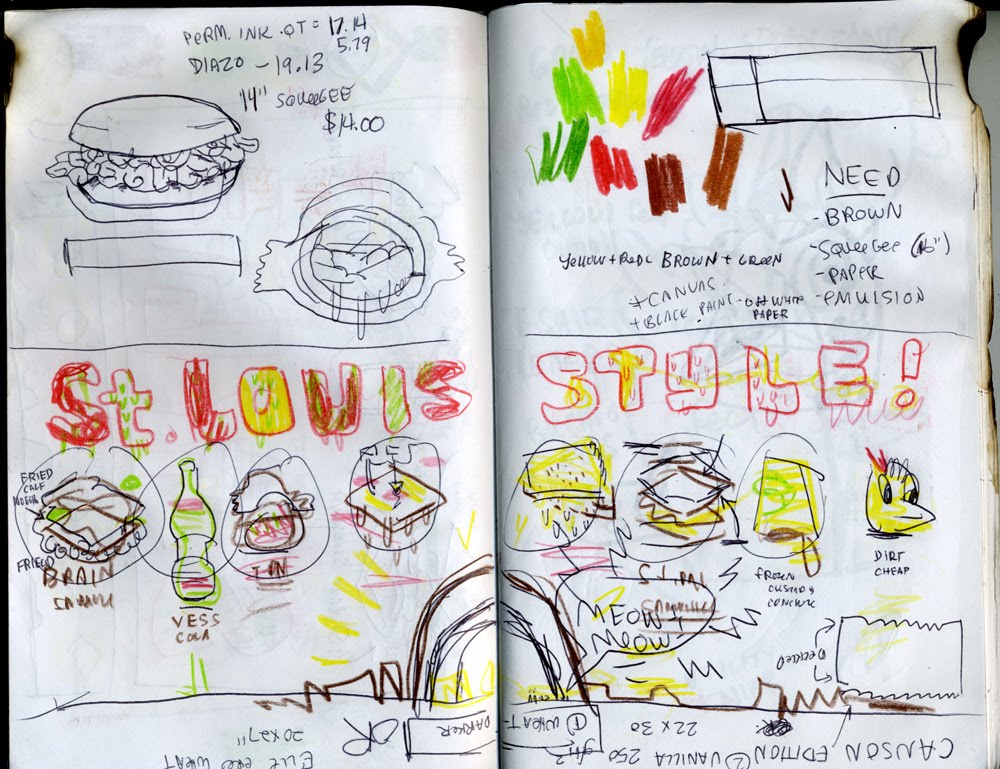 PERM. INK. QT = 17.14
5.79
DIAZO - 19.13
14" SQUEEGEE
$14.00
NEED
- BROWN
- SQUEEGEE (16")
- PAPER
- EMULSION
YELLOW + RED BROWN + GREEN
+ CANVAS
+ BLACK PAINT - OFF WHITE
PAPER
St. LOUIS STYLE!
FRIED
CALF
FRIED
BRAIN
VESS
COLA
ST. PAUL
FROZEN
CUSTARD
CONCRETE
DIRT
CHEAP
MEOW +
MEOW
DECKLED
OR
DARKER
① WHEAT
20 x 27"
22 x 30
OR
CANSON EDITION ② VANILLA 250